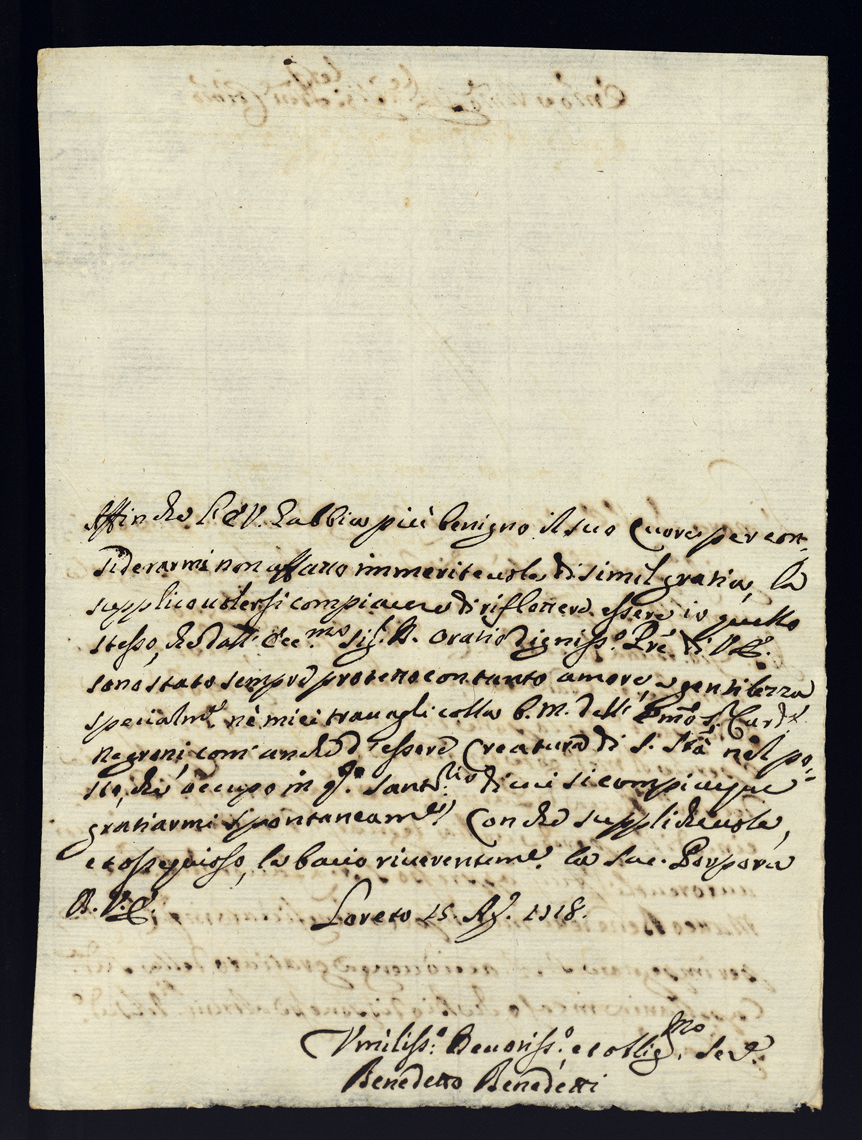 Affinche l'E.V. habbia più benigno il suo Cuore per con-
siderarmi non affatto immeriteuole di simil gratia, la
supplico volersi compiacere di riflettere essere io quello
stesso, che dall' Ecc.mo Sig.r D. Oratio digniss.o Pre di V.E.
sono stato sempre protetto con tanto amore, e gentilezza
specialm.e nè miei trauagli colla b.m. dell' Emo S. Card.l
Negroni, com' anche d' essere Creatura di S. Stà nel po-
sto, che occupo in q.o Sant.rio di cui si compiacque
gratiarmi spontaneam.e Con che supplicheuole,
et ossequioso, le bacio riuerentem.e la Sac. Porpora
D. V. E. Loreto 15. Ag. 1718.
Vmiliss.o Deuotiss.o, et obblig.mo Ser.e
Benedetto Benedetti